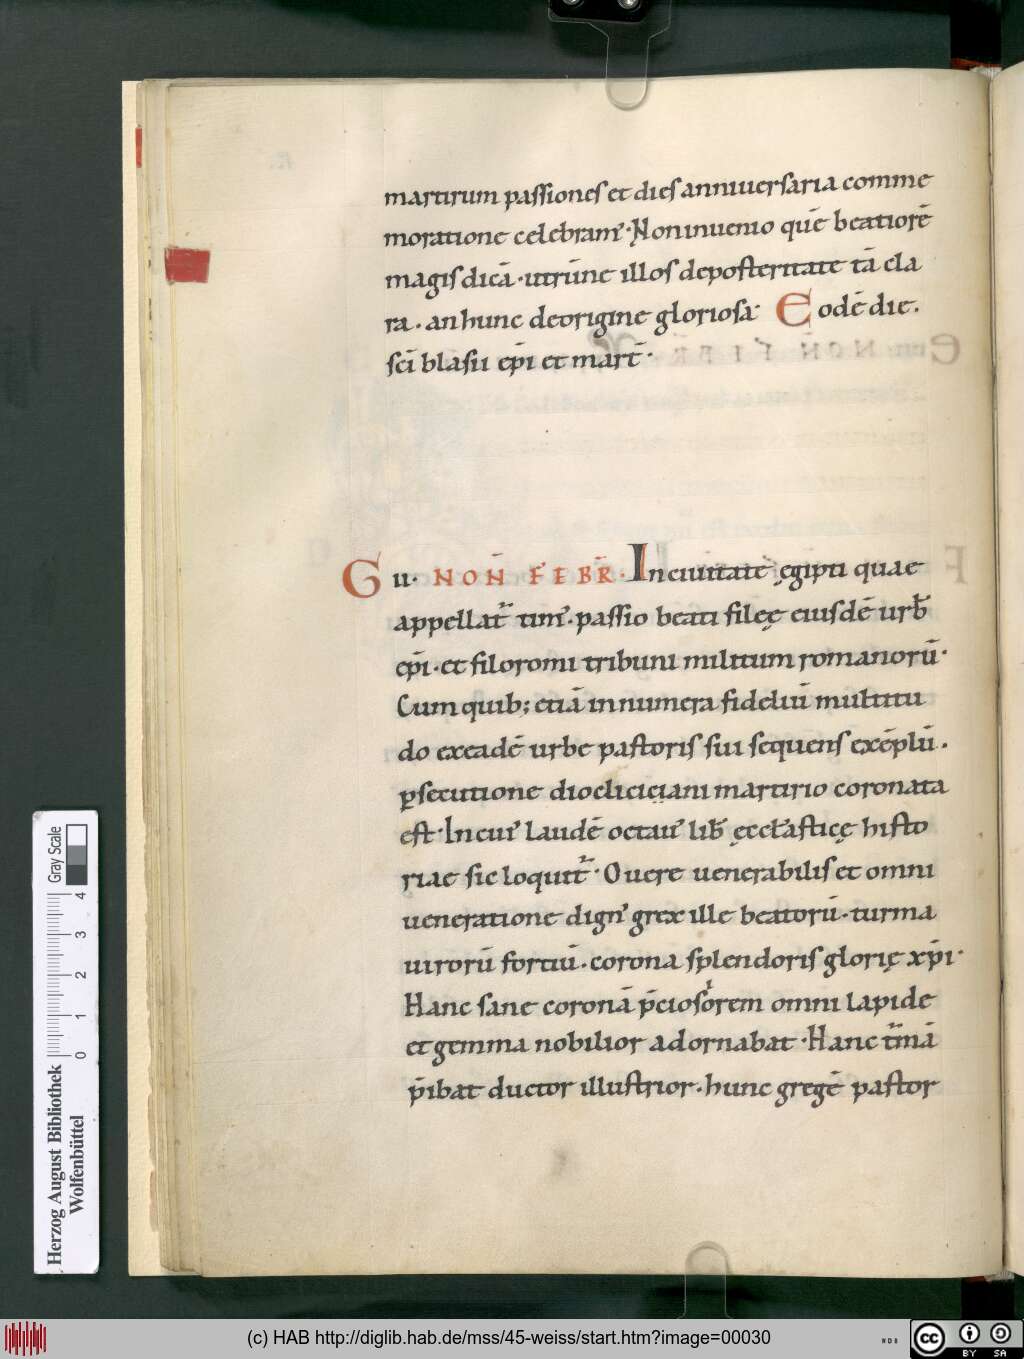 martirum passiones et dies anniuersaria comme
moratione celebram᾿. Non inuenio quē beatiorē
magis dicā. utrūne illos deposteritate tā cla
ra. an hunc deorigine gloriosa. Eodē die.
sc̄i blasii ep̄i et mart̄.
G II. NON̄ FEBR̄. In ciuitate ęgipti quae
appellat᷑ tim᾿. passio beati fileę eiusdē urb̄
ep̄i. et filoromi tribuni militum romanorū.
Cum quib; etiā innumera fideliū multitu
do exeadē urbe pastoris sui sequens exēplū.
ꝑsecutione diocliciani martirio coronata
est. In cui᾿ laudē octau᾿ lib̄ ęccl̄asticę histo
riae sic loquit᷑. O uere uenerabilis et omni
ueneratione dign᾿ grex ille beatorū. turma
uirorū fortiū. corona splendoris glorię xp̄i.
Hanc sane coronā p̄ciosorem omni lapide
et gemma nobilior adornabat. Hanc t᷑mā
p̄ibat ductor illustrior. hunc gregē pastor
Herzog August Bibliothek
Wolfenbüttel
0 1 2 3 4
Gray Scale
(c) HAB http://diglib.hab.de/mss/45-weiss/start.htm?image=00030
WDB
cc BY SA